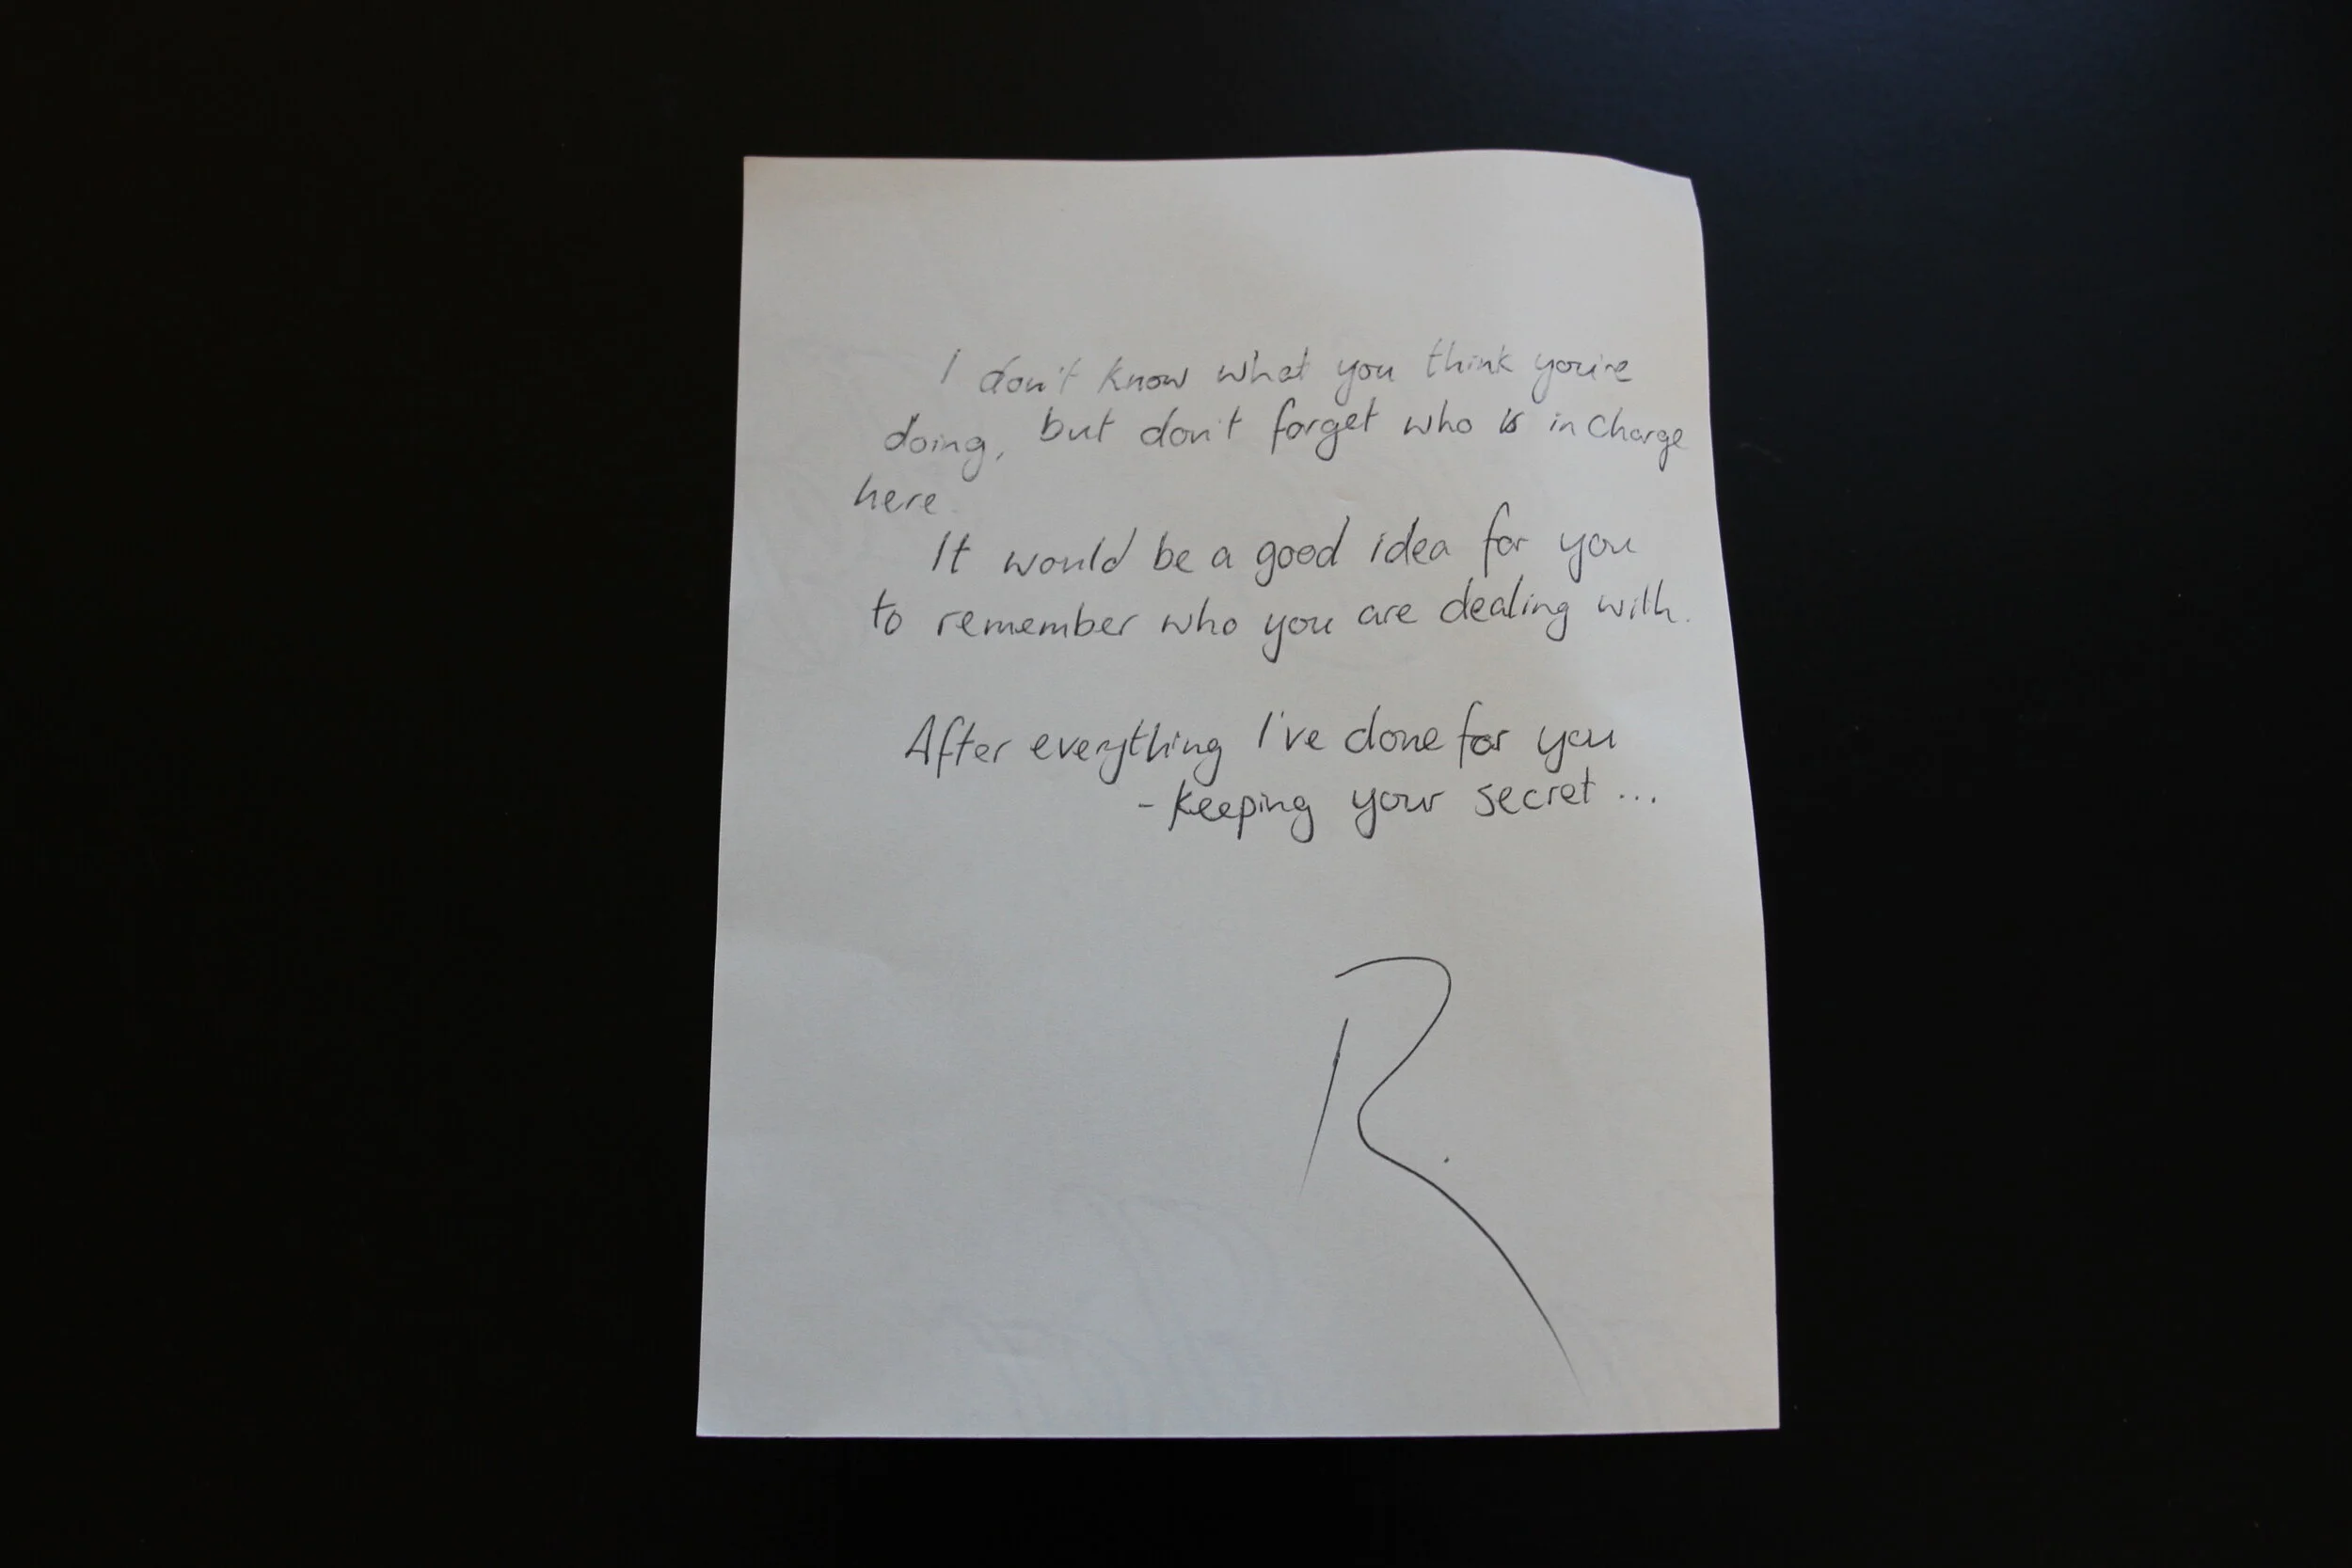 I don't know what you think you're
doing, but don't forget who is in charge
here.
It would be a good idea for you
to remember who you are dealing with.
After everything I've done for you
- keeping your secret ...
R.